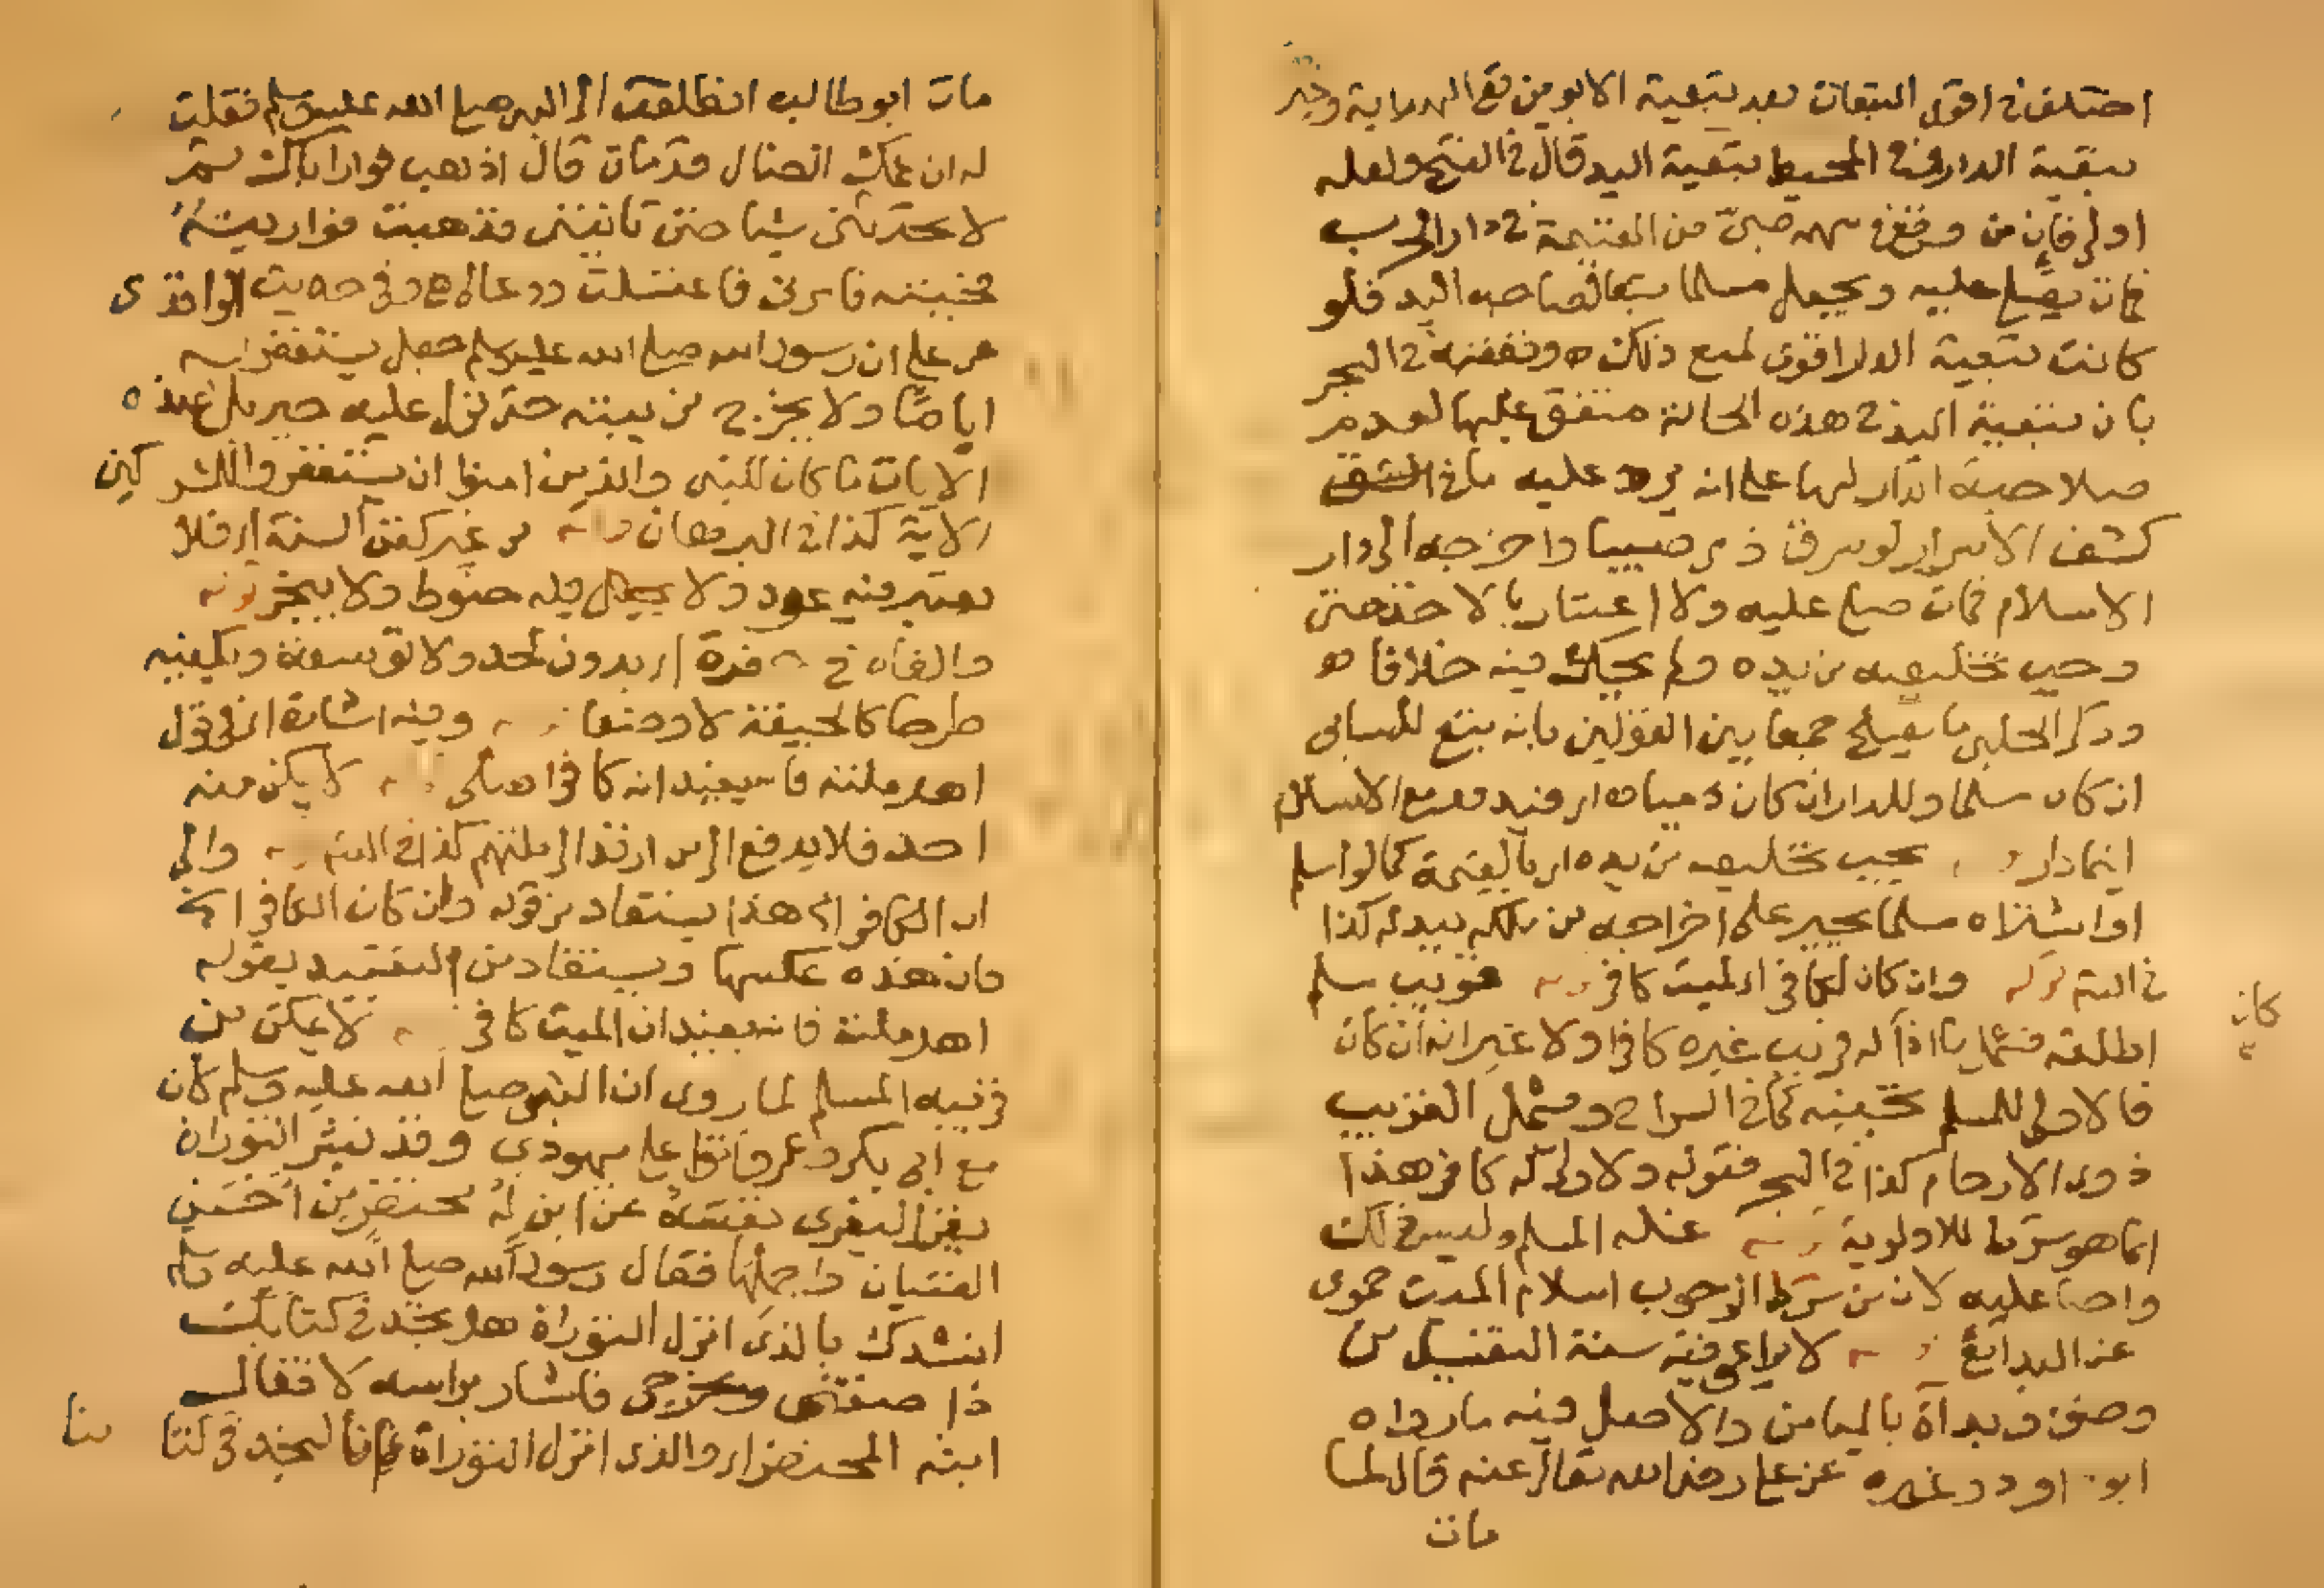 اختلف في اقوى التبعات بعد تبعية الابوين ففي الهداية وغيره
تبعية الدار وفي المحيط تبعية اليد قال في الفتح ولعله
اولى فان من وقع في سهمه صبي من الغنيمة في دار الحرب
فمات يصلى عليه ويجعل مسلما تبعا لصاحب اليد فلو
كانت تبعية الدار اقوى لمنع ذلك ه وتعقبه في البحر
بان تبعية اليد في هذه الحالة متفق عليها لعدم
صلاحية الدار لها على انه يرد عليه ما في
كشف الاسرار لو سرق ذمي صبيا واخرجه الى دار
الاسلام فمات صلي عليه ولا اعتبار بالاخذ حتى
وجب تخليصه من يده ولم يحك فيه خلافا ه
وذكر الحلبي ما يصلح جمعا بين القولين بانه يتبع للسابى
ان كان مسلما وللدار ان كان ذميا ه او فيدور مع الاسلام
اينما دار يجب تخليصه من يده اي بالقيمة كما لو اسلم
او اشتراه مسلما يجبر على اخراجه من ملكه ببدله كذا
في النهر قوله وان كان لكافر اي لميت كافر قريب مسلم
اطلقه فشمل ما اذا له قريب غيره كافر اولا غير انه ان كان
كان
فالاولى للمسلم تجنبه كما في السراج وشمل القريب
ذوي الارحام كذا في البحر فقوله ولا ولي له كافر هذا
انما هو شرط للاولوية غسله المسلم وليس ذلك
واجبا عليه لان من شرط الوجوب اسلام الميت حموي
عن البدائع لا يراعى فيه سنة التغسيل من
وضوء وبداة بالميامن والاصل فيه ما رواه
ابو داود وغيره عن علي رضي الله تعالى عنه قال لما
مات
مات ابو طالب انطلقت الى النبي صلى الله عليه وسلم فقلت
له ان عمك الضال قد مات قال اذهب فوار اباك ثم
لا تحدثن شيا حتى تاتيني فذهبت فواريته
فجئته فامرني فاغتسلت ودعا لي ه وفي حديث الواقدي
عن علي ان رسول الله صلى الله عليه وسلم جعل يستغفر له
اياما ولا يخرج من بيته حتى نزل عليه جبريل بهذه
الايات ما كان للنبي والذين امنوا ان يستغفروا للمشركين
الاية كذا في البرهان من غير كفن السنة اي فلا
يعتبر فيه عدد ولا يجعل فيه حنوط ولا يبخر
والقاه في حفرة اي بدون لحد ولا توسعة ويلقيه
طرحا كالجيفة لا وضعا وفيه اشارة الى قول
اهل ملته فانه يفيد انه كافر اصلي لا يكن منه
احد فلا يدفع الى من ارتد الى ملتهم كذا في النهر والى
ان الكافر الى هذا يستفاد من قوله وان كان الكافر الخ
فان هذه عكسها ويستفاد من التقييد بقوله
اهل ملته فانه يفيد ان الميت كافر لا يمكن من
قريبه المسلم لما روى ان النبي صلى الله عليه وسلم كان
مع ابي بكر وعمر فاتوا على يهودي وقد نشر التوراة
يقرا ليعزي نفسه عن ابن له محتضر من احسن
الفتيان واجملها فقال رسول الله صلى الله عليه وسلم
انشدك بالذي انزل التوراة هل تجد في كتابك
ذا صفتي ومخرجي فاشار براسه لا فقال
ابنه المحتضر اي والذي انزل التوراة فانا لنجد في كتابنا